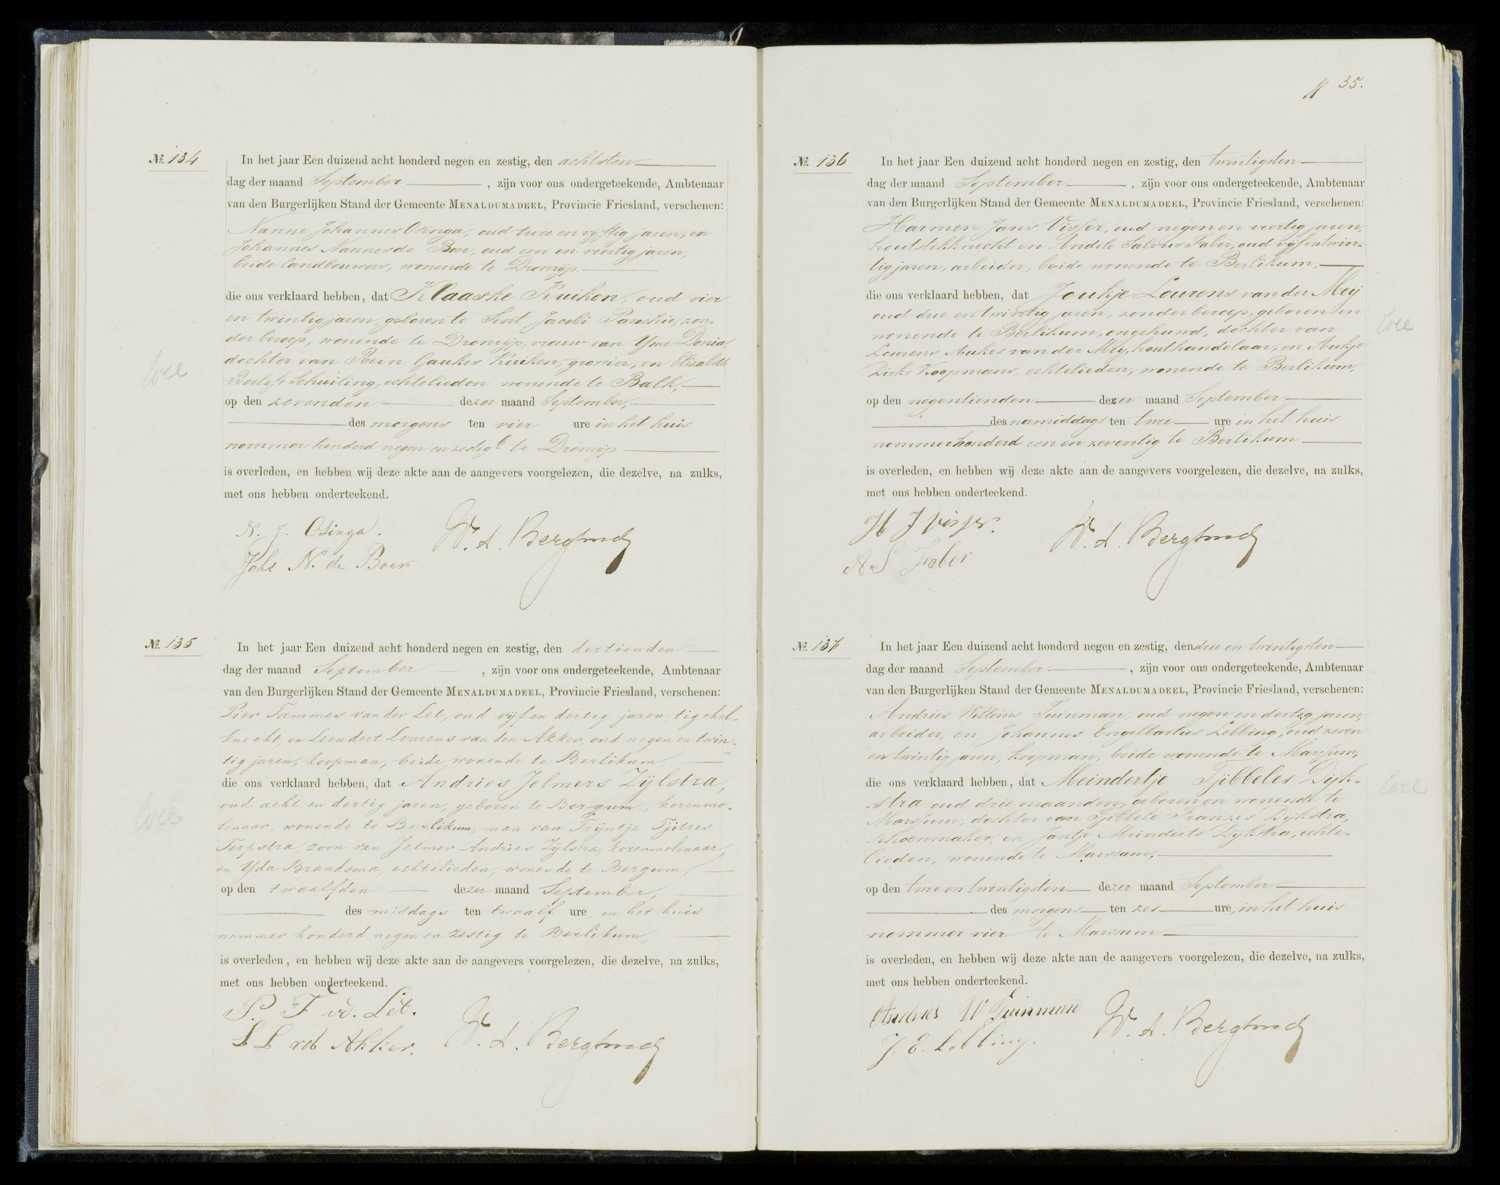 № 134
In het jaar Een duizend acht honderd negen en zestig, den achtsten
dag der maand September, zijn voor ons ondergeteekende, Ambtenaar
van den Burgerlijken Stand der Gemeente MENALDUMADEEL, Provincie Friesland, verschenen:
Nanne Johannes Osinga, oud twee en vijftig jaren, en
Johannes Nannes de Boer, oud een en veertig jaren,
beide landbouwers, wonende te Dronrijp
die ons verklaard hebben, dat Klaaske Kuiken, oud vier
en twintig jaren, geboren te Sint Jacobi Parochie, zon-
der beroep, wonende te Dronrijp, vrouw van Ype Donia
dochter van Pier Gaukes Kuiken, grovier, en Elisabeth
Roelofs Schuiling, echtelieden wonende te Balk,
op den zevenden dezer maand September,
des morgens ten vier ure in het huis
nommer honderd negen en zestig te Dronrijp
is overleden, en hebben wij deze akte aan de aangevers voorgelezen, die dezelve, na zulks,
met ons hebben onderteekend.
N. J. Osinga.
Johs N. de Boer
№ 135
In het jaar Een duizend acht honderd negen en zestig, den dertienden
dag der maand September, zijn voor ons ondergeteekende, Ambtenaar
van den Burgerlijken Stand der Gemeente MENALDUMADEEL, Provincie Friesland, verschenen:
Pier Tammes van der Let, oud vijf en dertig jaren, tigchel-
knecht, en Leendert Lourens van den Akker, oud negen en twin-
tig jaren, koopman, beide wonende te Berlikum,
die ons verklaard hebben, dat Andries Jelmers Zijlstra,
oud acht en dertig jaren, geboren te Bergum, korenmo-
lenaar, wonende te Berlikum, man van Trijntje Tjitzes
Terpstra, zoon van Jelmer Andries Zylstra, korenmolenaar,
en Ytje Brandsma, echtelieden, wonende te Bergum,
op den twaalfden dezer maand September,
des middags ten twaalf ure in het huis
nommer honderd negen en zestig te Berlikum
is overleden, en hebben wij deze akte aan de aangevers voorgelezen, die dezelve, na zulks,
met ons hebben onderteekend.
P. T. vd. Lét.
L L vd Akker.
35.
№ 136
In het jaar Een duizend acht honderd negen en zestig, den twintigsten
dag der maand September, zijn voor ons ondergeteekende, Ambtenaar
van den Burgerlijken Stand der Gemeente MENALDUMADEEL, Provincie Friesland, verschenen:
Harmen Jans Visser, oud negen en veertig jaren,
houtstekknecht en Andele Salves Faber, oud vijf en twin-
tig jaren, arbeider, beide wonende te Berlikum,
die ons verklaard hebben, dat Joukje Lourens van der Meij
oud drie en twintig jaren, zonder beroep, geboren en
wonende te Berlikum, ongehuwd, dochter van
Lourens Aukes van der Meij, houthandelaar, en Aukje
Dirks Koopmans, echtelieden, wonende te Berlikum,
op den negentienden dezer maand September
des namiddags ten twee ure in het huis
nommer honderd een en zeventig te Berlikum
is overleden, en hebben wij deze akte aan de aangevers voorgelezen, die dezelve, na zulks,
met ons hebben onderteekend.
H J Visser.
A. S Faber
№ 137
In het jaar Een duizend acht honderd negen en zestig, den drie en twintigsten
dag der maand September, zijn voor ons ondergeteekende, Ambtenaar
van den Burgerlijken Stand der Gemeente MENALDUMADEEL, Provincie Friesland, verschenen:
Andries Willems Tuinman, oud negen en dertig jaren,
arbeider, en Johannes Engelbartus Lebbing, oud zeven
en twintig jaren, koopman, beide wonende te Marssum,
die ons verklaard hebben, dat Meindertje Tjibbeles Dijk-
stra oud drie maanden, geboren en wonende te
Marssum, dochter van Tjibbele Franzes Dijkstra,
schoenmaker, en Jantje Meinderts Dijkstra, echte-
lieden, wonende te Marssum,
op den twee en twintigsten dezer maand September
des morgens ten zes ure, in het huis
nommer vier te Marssum
is overleden, en hebben wij deze akte aan de aangevers voorgelezen, die dezelve, na zulks,
met ons hebben onderteekend.
Andries W Tuinman
J. E. Lebbing.